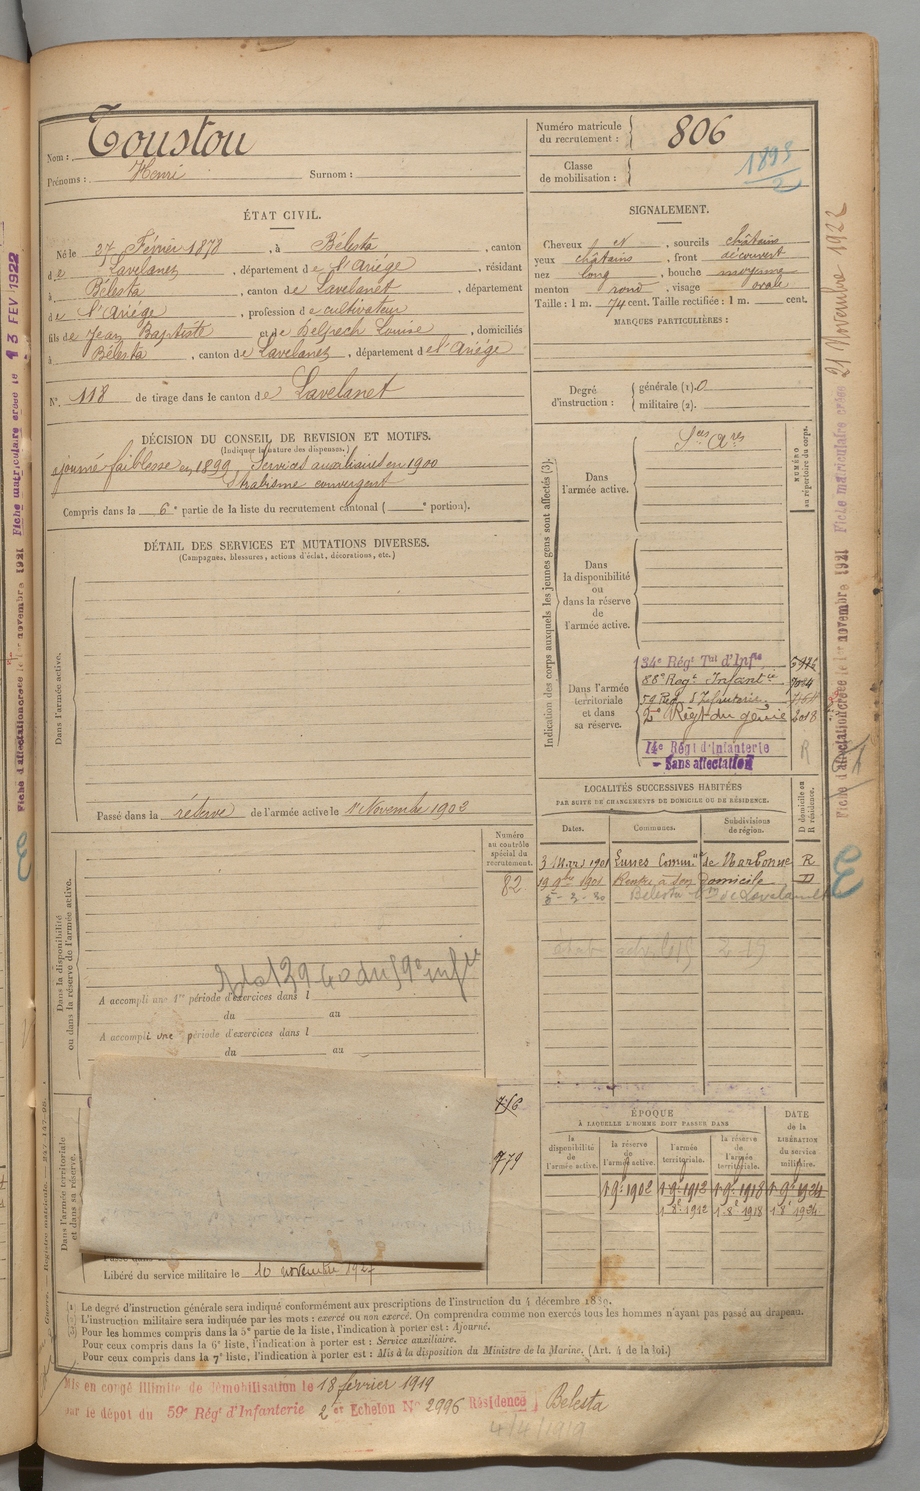 Nom : Toustou
Prénoms : Henri Surnom :
Numéro matricule du recrutement : 806
Classe de mobilisation : 1898/2
ÉTAT CIVIL.
Né le 27 Février 1878, à Bélesta, canton
de Lavelanet, département de l'Ariége, résidant
à Bélesta, canton de Lavelanet, département
de l'Ariége, profession de cultivateur
fils de Jean Baptiste et de Delpech Louise, domiciliés
à Bélesta, canton de Lavelanet, département de l'Ariége
N° 118 de tirage dans le canton de Lavelanet
DÉCISION DU CONSEIL DE REVISION ET MOTIFS.
(Indiquer la nature des dispenses.)
ajourné faiblesse en 1899, Services auxiliaires en 1900
Strabisme convergent
Compris dans la 6e partie de la liste du recrutement cantonal ( e portion).
SIGNALEMENT.
Cheveux N, sourcils châtains
yeux châtains, front découvert
nez long, bouche moyenne
menton rond, visage ovale
Taille : 1 m. 74 cent. Taille rectifiée : 1 m. cent.
MARQUES PARTICULIÈRES :
Degré d'instruction : générale (1). 0
militaire (2).
DÉTAIL DES SERVICES ET MUTATIONS DIVERSES.
(Campagnes, blessures, actions d'éclat, décorations, etc.)
Dans l'armée active.
Passé dans la réserve de l'armée active le 1er Novembre 1902
Indication des corps auxquels les jeunes gens sont affectés (3).
NUMÉRO au répertoire du corps.
Dans l'armée active.
Dans la disponibilité ou dans la réserve de l'armée active.
Dans l'armée territoriale et dans sa réserve.
34e Régt Tal d'Infie
88e Régt Infantie
59 Rég d'Infanterie
2e Régt du génie 2018
14e Régt d'Infanterie R
- Sans affectation
LOCALITÉS SUCCESSIVES HABITÉES
PAR SUITE DE CHANGEMENTS DE DOMICILE OU DE RÉSIDENCE.
Dates. Communes. Subdivisions de région. D domicile ou R résidence.
3 Mars 1901 Lunes Commne de Narbonne R
19 9bre 1901 Rentré à son Domicile D
5-3-20 Bélesta con de Lavelanet
Numéro au contrôle spécial du recrutement.
82
Dans la disponibilité ou dans la réserve de l'armée active.
A accompli une 1re période d'exercices dans l
du au
A accompli une période d'exercices dans l
du au
716
779
Dans l'armée territoriale et dans sa réserve.
Libéré du service militaire le 10 novembre 1927
ÉPOQUE
À LAQUELLE L'HOMME DOIT PASSER DANS
la disponibilité de l'armée active. la réserve de l'armée active. l'armée territoriale. la réserve de l'armée territoriale.
DATE de la LIBÉRATION du service militaire.
1 9e 1902 1 9e 1912 1 9e 1918 1 9e 1924
1 8e 1912 1 8e 1918 1 8e 1924
(1) Le degré d'instruction générale sera indiqué conformément aux prescriptions de l'instruction du 4 décembre 1889.
(2) L'instruction militaire sera indiquée par les mots : exercé ou non exercé. On comprendra comme non exercés tous les hommes n'ayant pas passé au drapeau.
(3) Pour les hommes compris dans la 5e partie de la liste, l'indication à porter est : Ajourné.
Pour ceux compris dans la 6e liste, l'indication à porter est : Service auxiliaire.
Pour ceux compris dans la 7e liste, l'indication à porter est : Mis à la disposition du Ministre de la Marine. (Art. 4 de la loi.)
Mis en congé illimité de démobilisation le 18 février 1919
par le dépôt du 59e Rég' d'Infanterie 2e Echelon N° 2996 Résidence Bélesta
4/4/1919
Fiche d'affectation créée le 1er novembre 1921 Fiche matriculaire créée 21 Novembre 1922
Fiche d'affectation créée le 1er novembre 1921 Fiche matriculaire créée le 13 FEV 1922